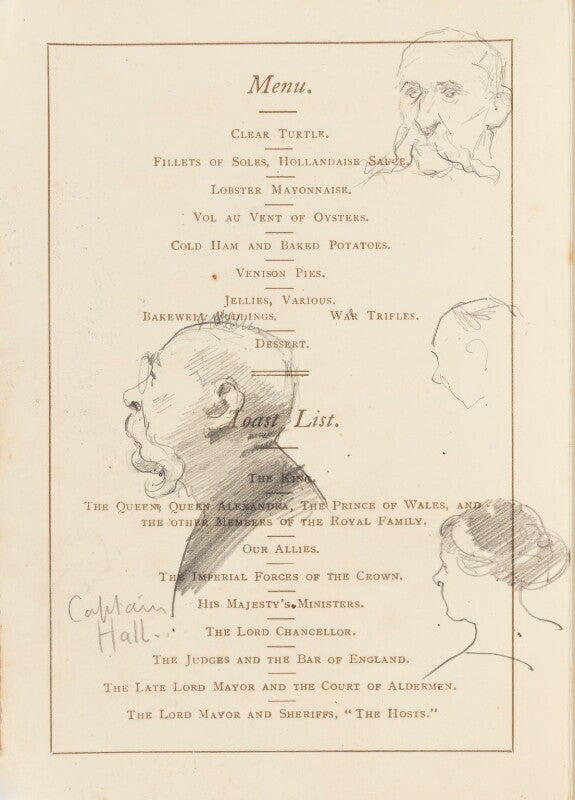 Menu.
Clear Turtle.
Fillets of Soles, Hollandaise Sauce.
Lobster Mayonnaise.
Vol au Vent of Oysters.
Cold Ham and Baked Potatoes.
Venison Pies.
Jellies, Various.
Bakewell Puddings. War Trifles.
Dessert.
Toast List.
The King.
The Queen, Queen Alexandra, The Prince of Wales, and
the other Members of the Royal Family.
Our Allies.
The Imperial Forces of the Crown.
His Majesty's Ministers.
The Lord Chancellor.
The Judges and the Bar of England.
The Late Lord Mayor and the Court of Aldermen.
The Lord Mayor and Sheriffs, "The Hosts."
Captain
Hall